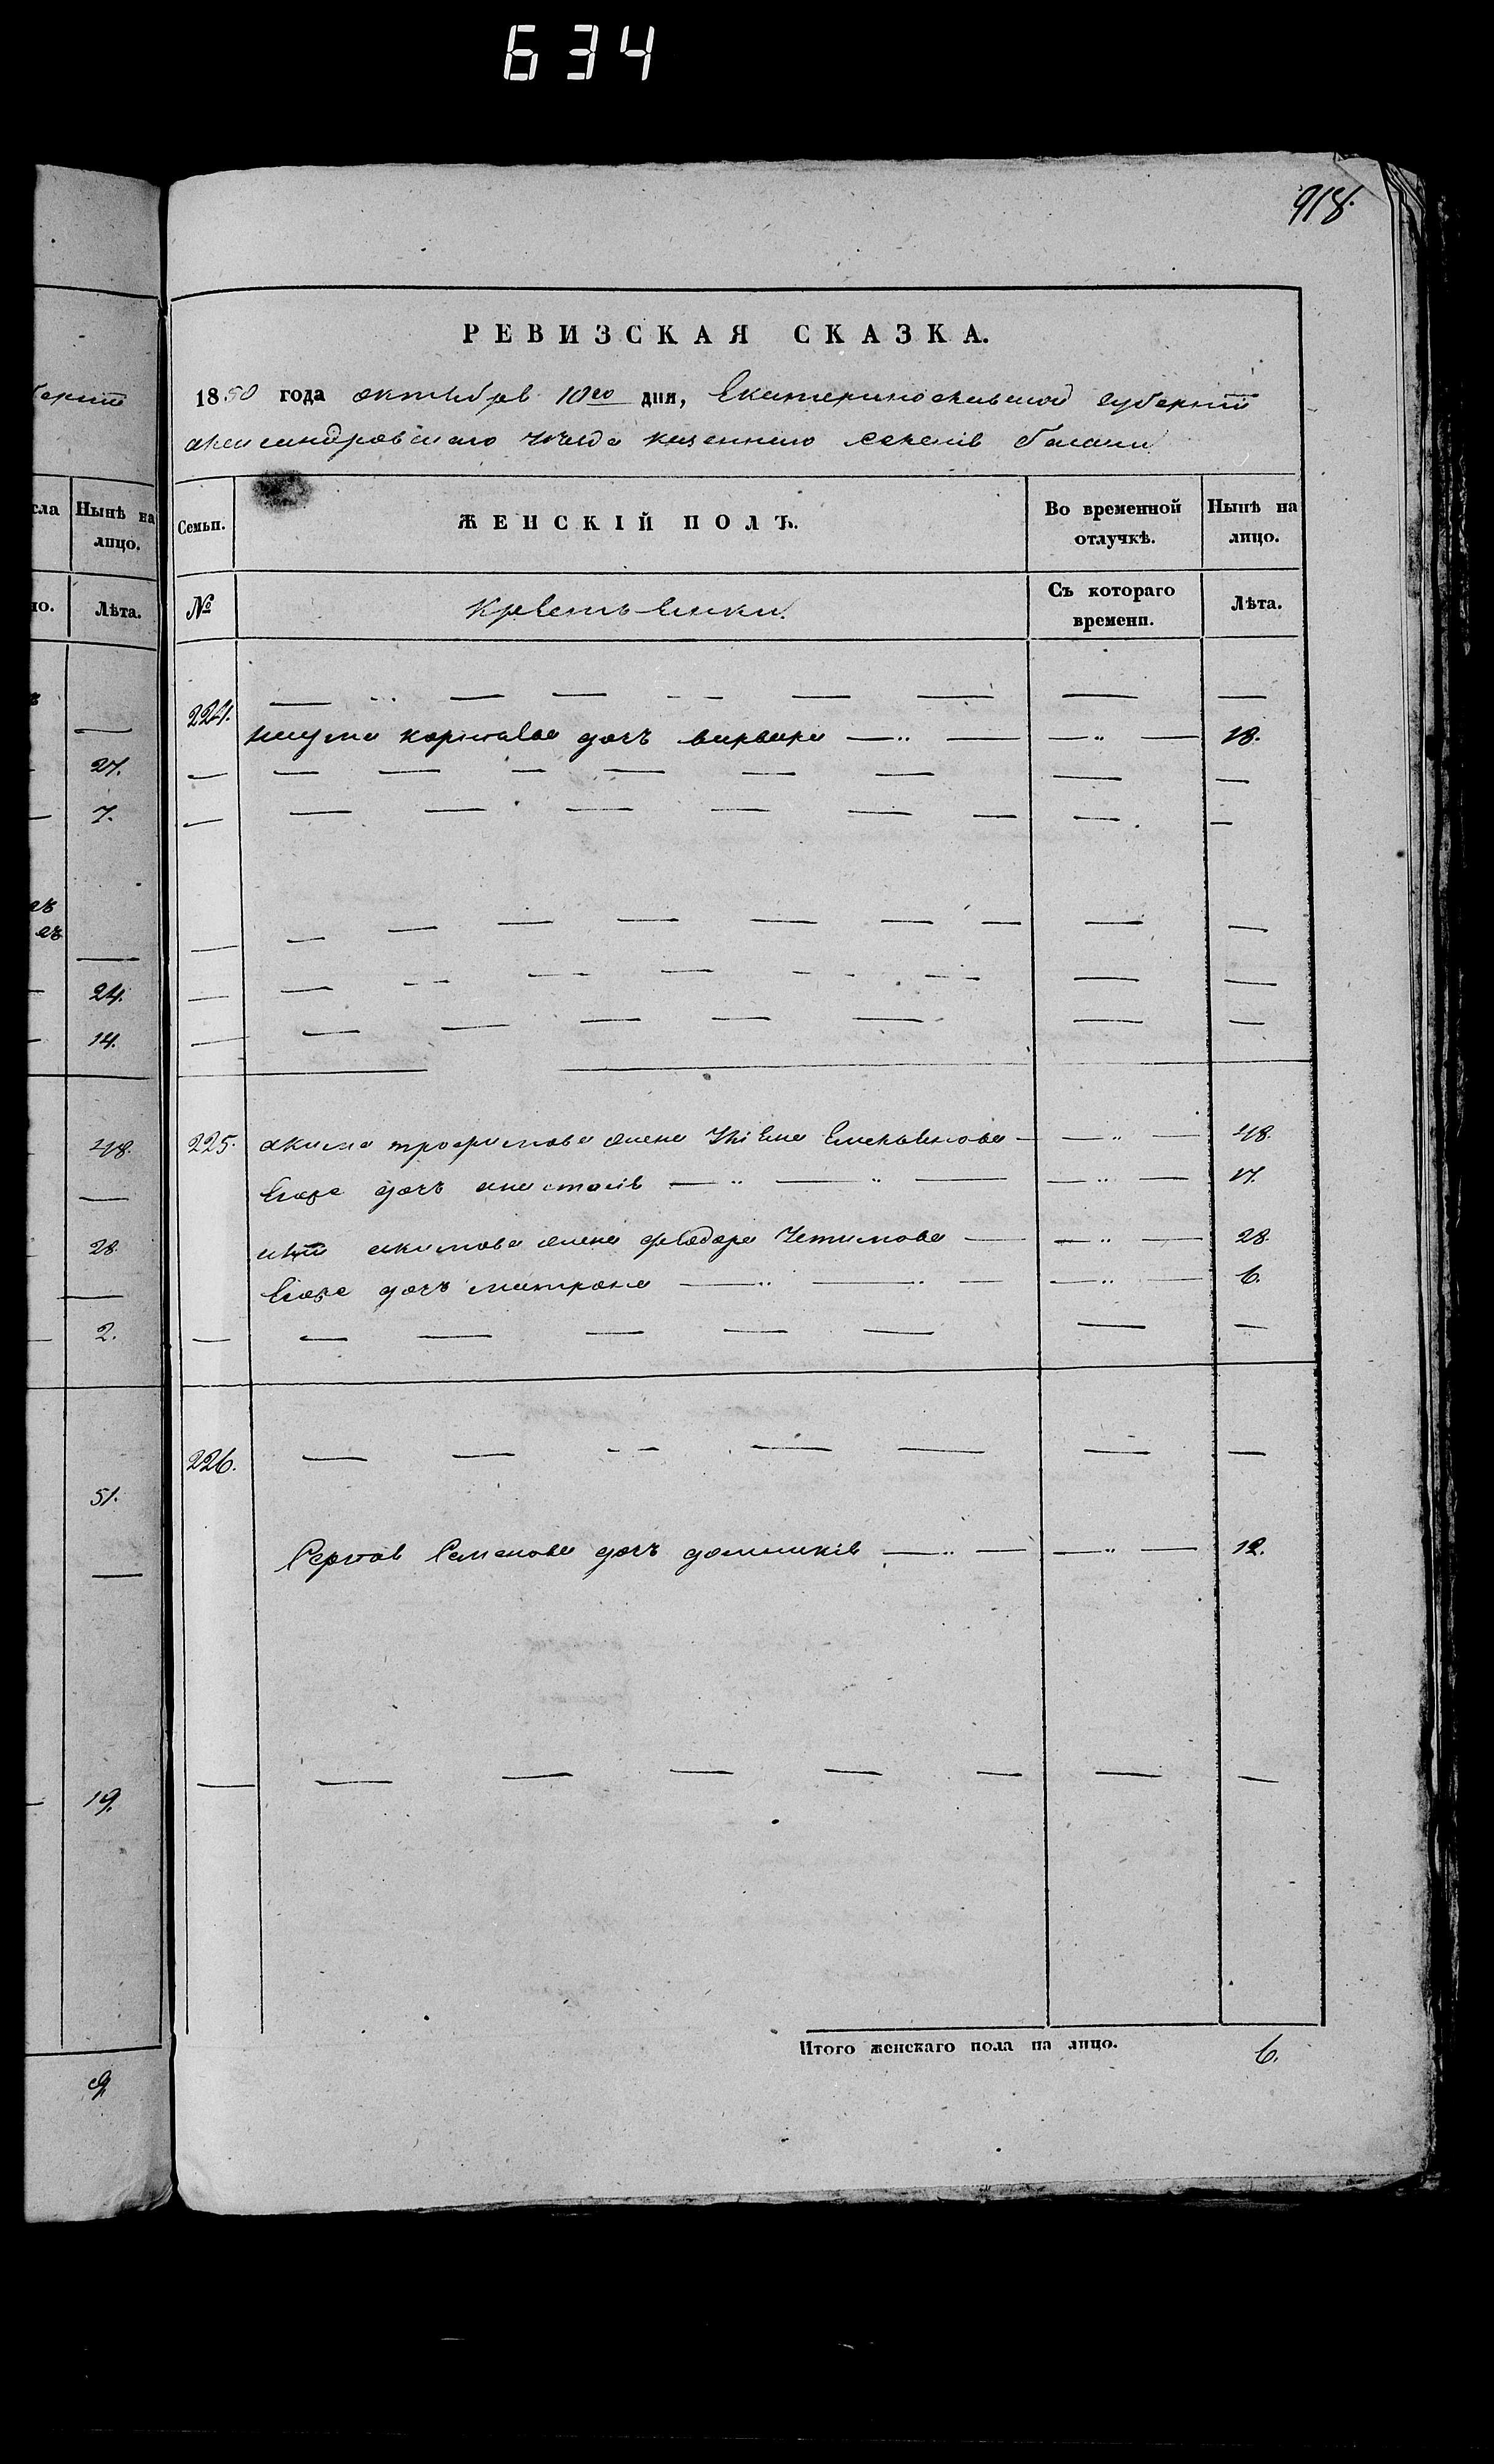 634
918.
берніи
РЕВИЗСКАЯ СКАЗКА.
1850 года октября 10го дня, Екатеринославской губерніи
александровскаго уѣзда казеннаго селенія балки
сла Нынѣ на лицо.
но. Лѣта.
27.
7.
24.
14.
48.
28.
2.
51.
19.
9
Семьи. ЖЕНСКІЙ ПОЛЪ. Во временной отлучкѣ. Нынѣ на лицо.
№ Крестьянки. Съ котораго времени. Лѣта.
224.
наума корнѣева дочь варвара — „ — — „ — 18.
225. акима трофимова жена Емельянова — — „ — 48.
Егоже дочь анастасія — „ — „ — — „ — 17.
акимова жена феодора — — „ — 28.
Егоже дочь матрона — „ — „ — — „ — 6.
226.
Сергѣя Семенова дочь домникія — „ — — „ — 12.
Итого женскаго пола на лицо. 6.